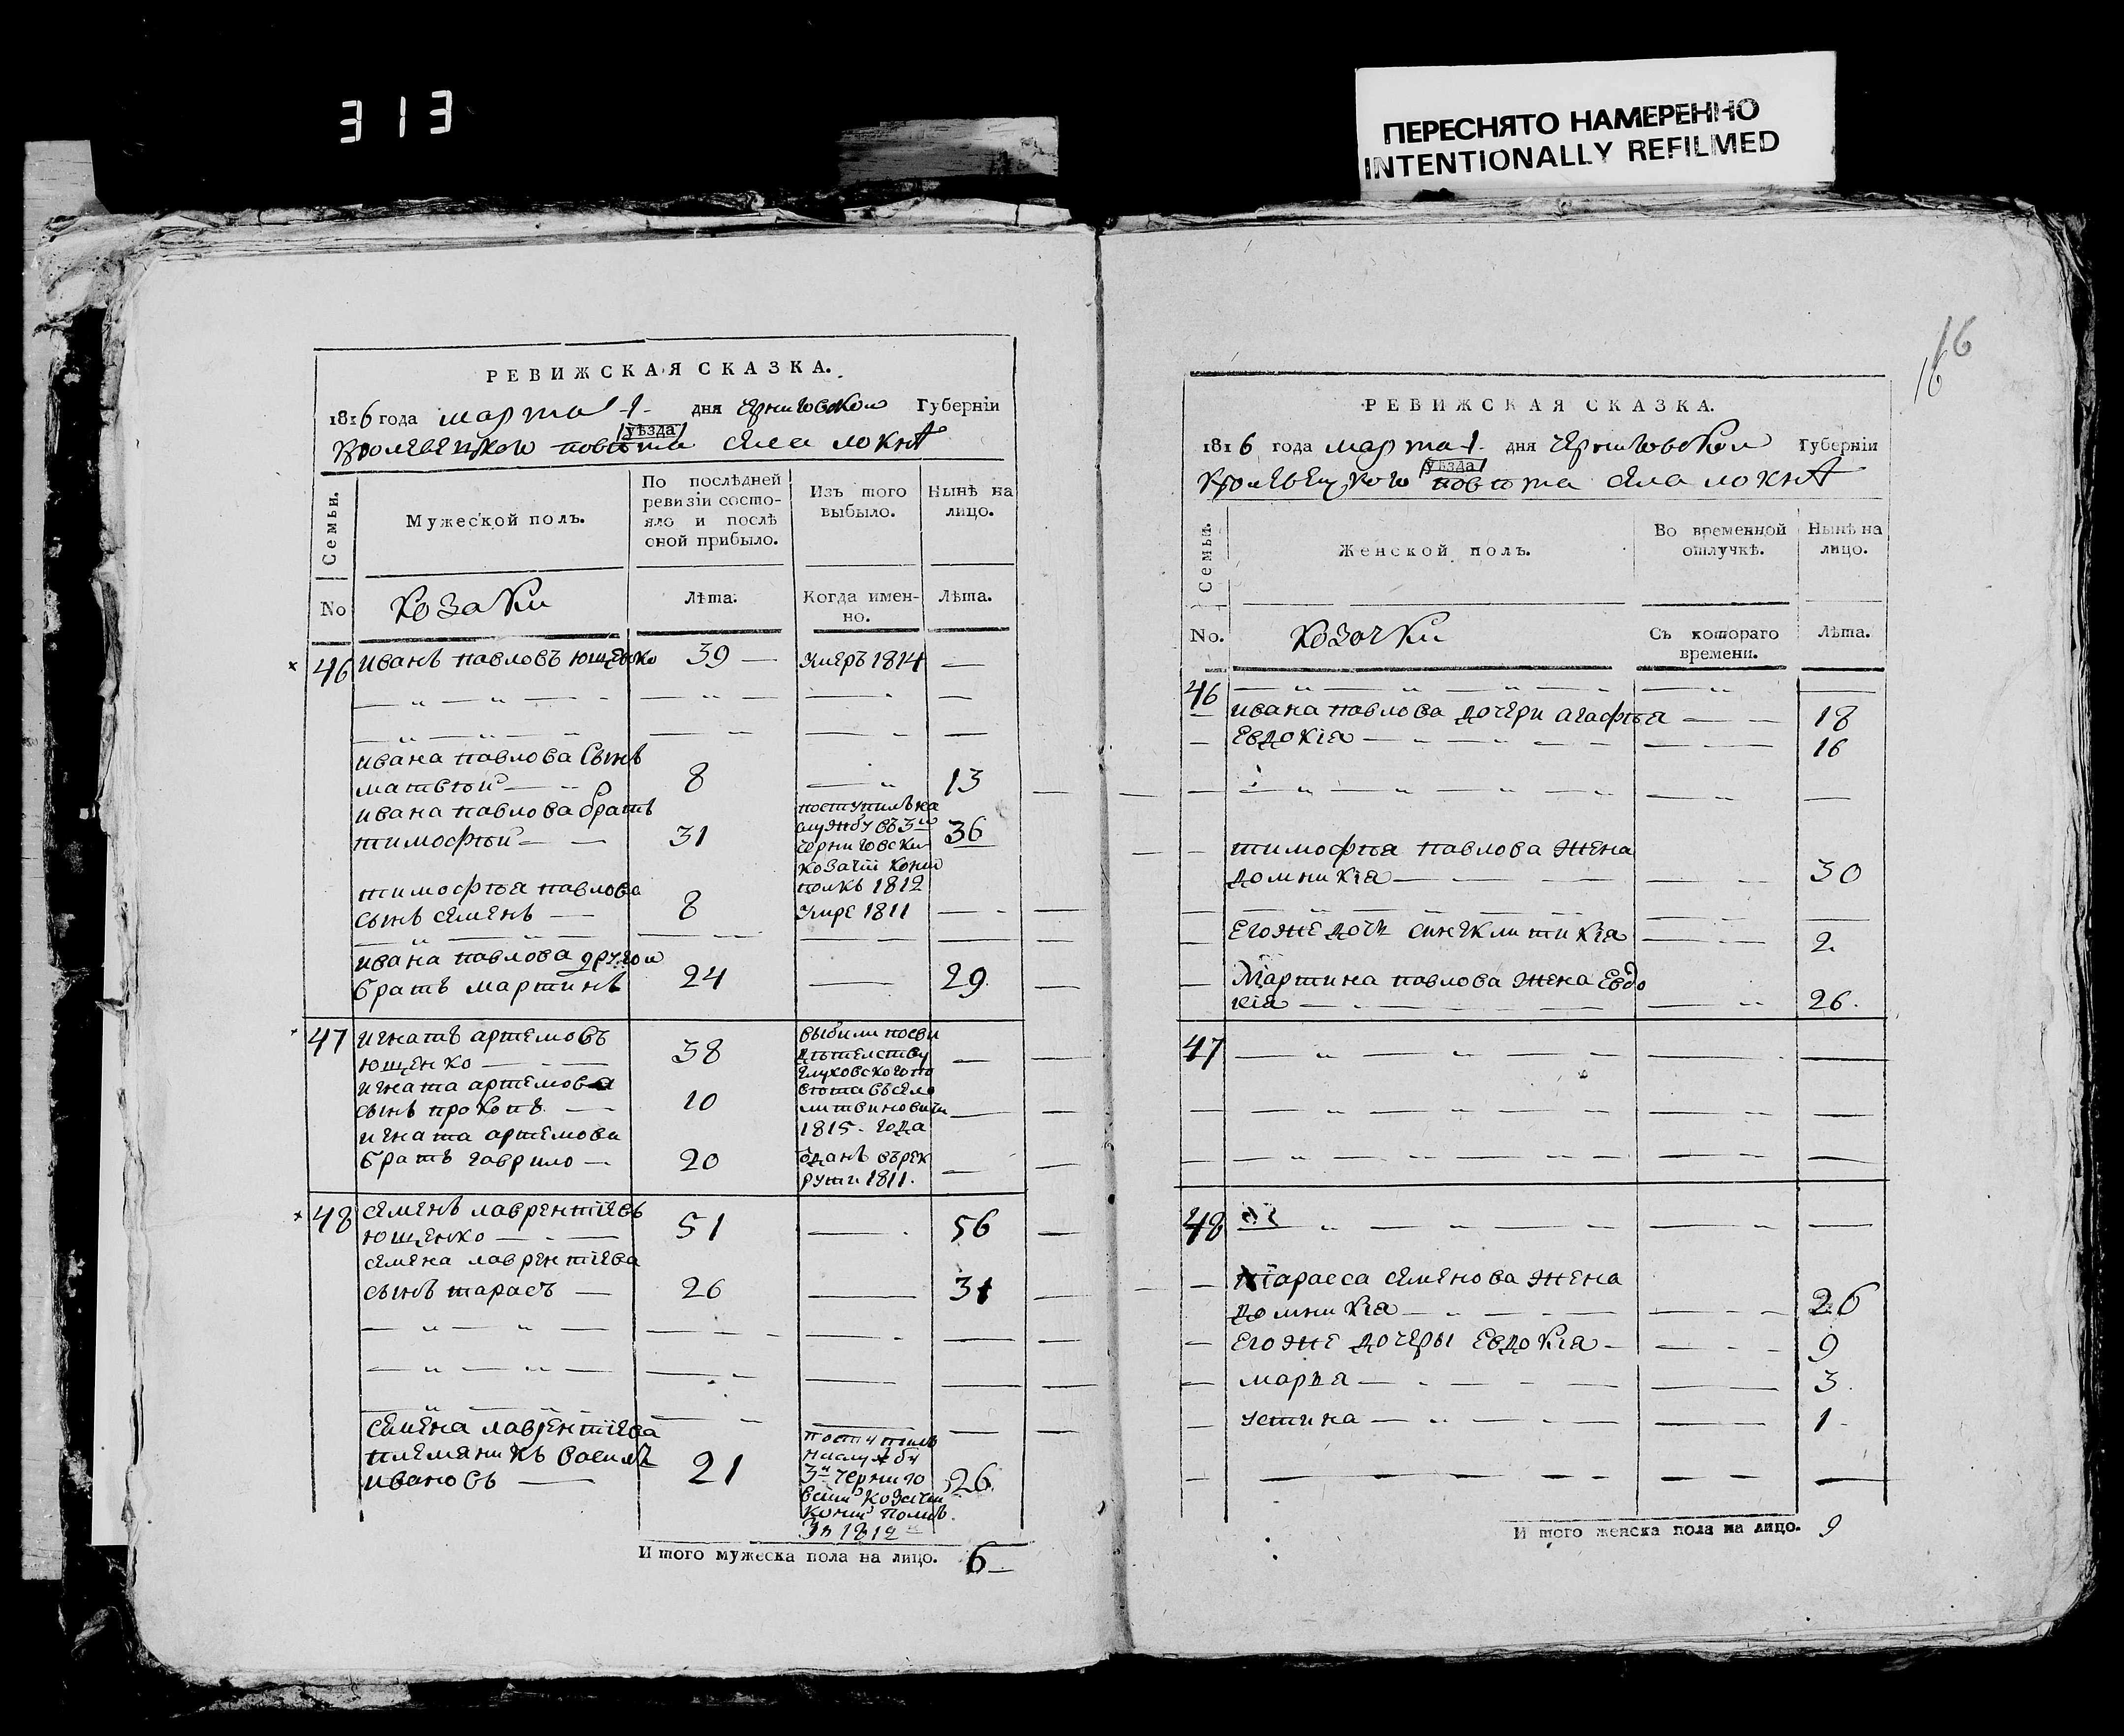 313
ПЕРЕСНЯТО НАМЕРЕННО
INTENTIONALLY REFILMED
РЕВИЖСКАЯ СКАЗКА.
1816 года марта 1 дня Черниговской Губерніи
уѣзда
Кролевецкого повѣта села Локнѣ
Семьи.
Мужеской полъ.
По послѣдней
ревизіи состо-
яло и послѣ
оной прибыло.
Изъ того
выбыло.
Нынѣ на
лицо.
No
козаки
Лѣта.
Когда имен-
но.
Лѣта.
46 иванъ павловъ ющенко 39 — умеръ 1814 —
ивана павлова сынъ
матвѣй 8 13
ивана павлова братъ
тимофѣй 31 36
поступилъ на
службу въ 3й
черниговски
козачій конни
полкъ 1812
тимофѣя павлова
сынъ семенъ — 8 умре 1811
ивана павлова другои
братъ мартинъ 24 — 29.
47 игнатъ артемовъ
ющенко 38 —
игната артемова
сынъ прокопъ — 10 —
выбили посви
дѣтелству
глуховского по
вѣта въ село
литвиновичи
1815. года
игната артемова
братъ гаврило — 20 —
ѿданъ врек
рути 1811.
48 семенъ лаврентіевъ
ющенко 51 — 56
семена лаврентіева
сынъ тарасъ — 26 — 31
семена лаврентіева
племяникъ василъ
ивановъ — 21 26
поступилъ
наслужбу
3й чернико
вскій козачій
конни полкъ
1812
И того мужеска пола на лицо. 6
16
16
РЕВИЖСКАЯ СКАЗКА.
1816 года марта 1 дня Черниговской Губерніи
уѣзда
Кролевецкого повѣта села Локнѣ
Семьи.
Женской полъ.
Во временной
отлучкѣ.
Нынѣ на
лицо.
No.
козочки
Съ котораго
времени.
Лѣта.
46
ивана павлова дочери агафѣя — 18
Евдокія — 16
тимофѣя павлова жена
домникія — 30
егоже дочь синклитикія 2
Мартина павлова жена Евдо
кія — 26.
47
48
тараса семенова жена
домникія — 26
егоже дочеры Евдокія — 9
марья — 3.
устина — 1
И того женска пола на лицо. 9